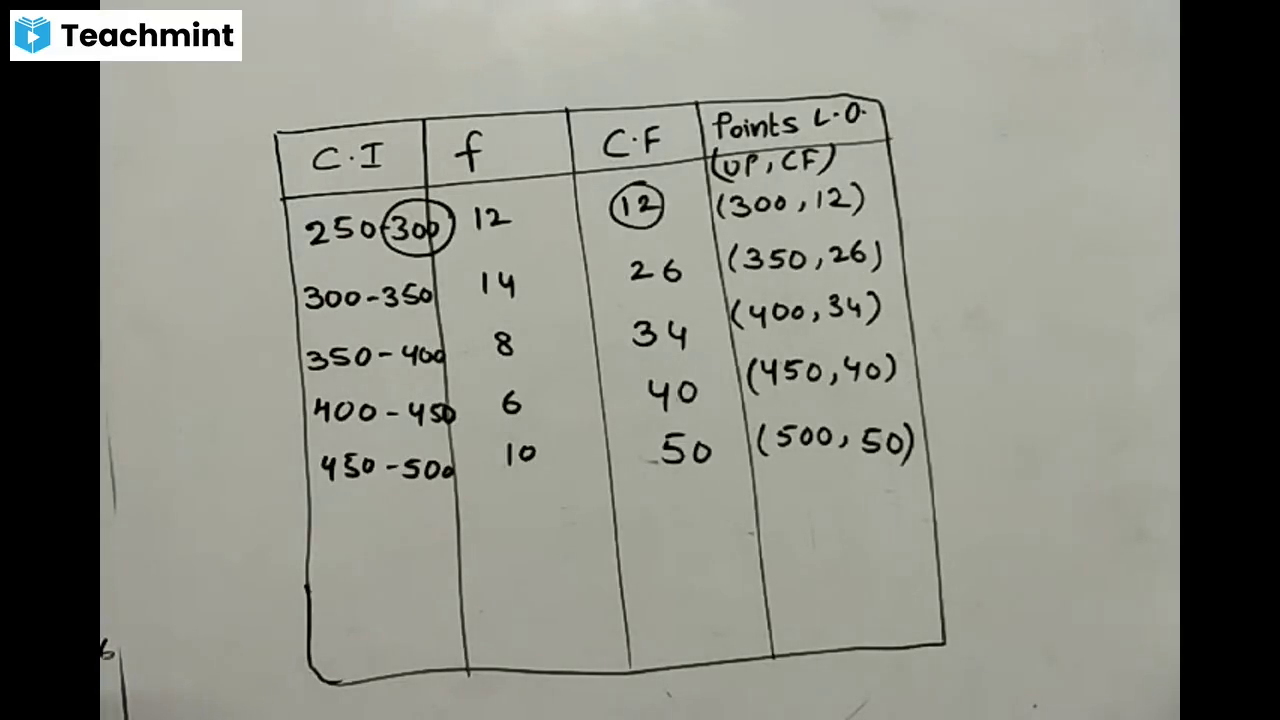 Teachmint
C.I f C.F Points L.O.
(UP, CF)
250-300 12 12 (300, 12)
300-350 14 26 (350, 26)
350-400 8 34 (400, 34)
400-450 6 40 (450, 40)
450-500 10 50 (500, 50)
6